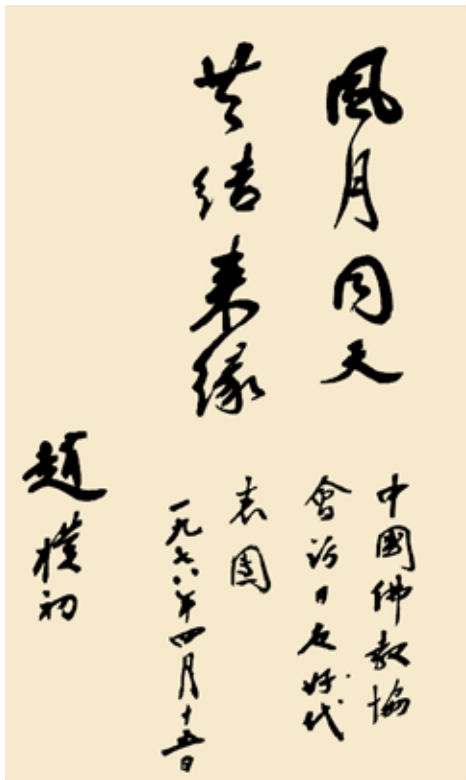 風月同天
共结来缘
中國佛教協
會訪日友好代
表團
一九七八年四月十五日
趙樸初